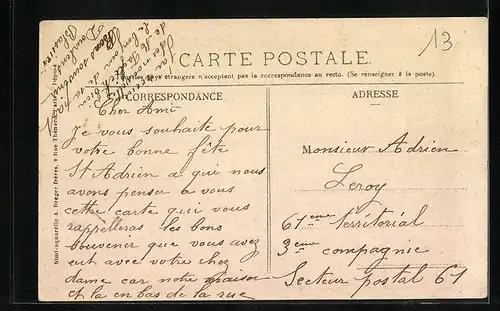 13
CARTE POSTALE.
pays étrangers n'acceptent pas la correspondance au recto. (Se renseigner à la poste).
CORRESPONDANCE
ADRESSE
Cher Ami
Je vous souhaite pour
votre bonne fête
St Adrien a que nous
avons penser a vous
cette carte qui vous
rappelleras les bons
souvenir que vous avez
eut avec votre chez
dame car notre maison
et la en bas de la rue
Monsieur Adrien
Leroy
61eme térritorial
3eme compagnie
Secteur postal 61